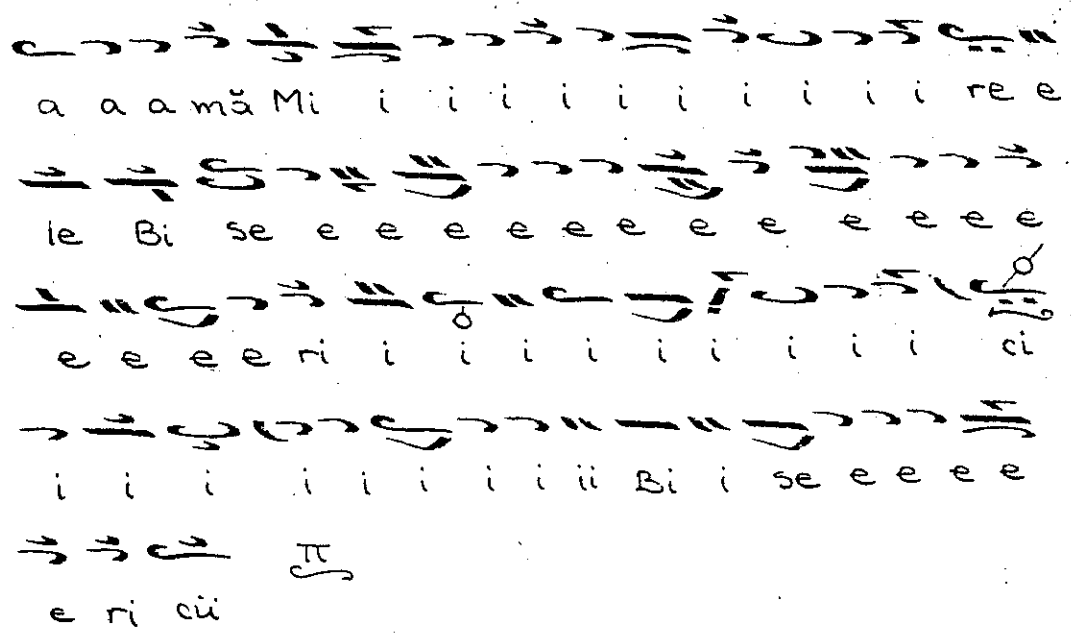 a a a mă Mi i i i i i i i i i i re e
le Bi se e e e e e e e e e e e e
e e e e ri i i i i i i i i i ci
i i i i i i i i ii Bi i se e e e e
π
e ri cii